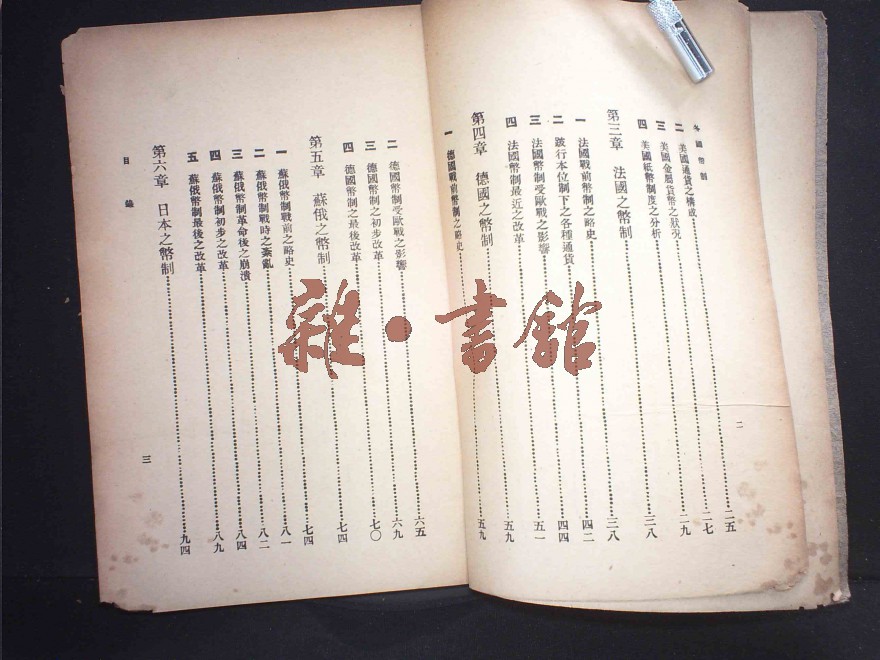 各國幣制
二
二 美國通貨之構成……二五
三 美國金屬貨幣之狀況……二七
四 美國紙幣制度之分析……二九
第三章 法國之幣制……三八
一 法國戰前幣制之略史……三八
二 跛行本位制下之各種通貨……四二
三 法國幣制受歐戰之影響……四四
四 法國幣制最近之改革……五一
第四章 德國之幣制……五九
一 德國戰前幣制之略史……五九
二 德國幣制受歐戰之影響……六五
三 德國幣制之初步改革……六九
四 德國幣制之最後改革……七〇
第五章 蘇俄之幣制……七四
一 蘇俄幣制戰前之略史……七四
二 蘇俄幣制戰時之紊亂……八一
三 蘇俄幣制革命後之崩潰……八二
四 蘇俄幣制初步之改革……八四
五 蘇俄幣制最後之改革……八九
第六章 日本之幣制……九四
目錄
三
雜·書館